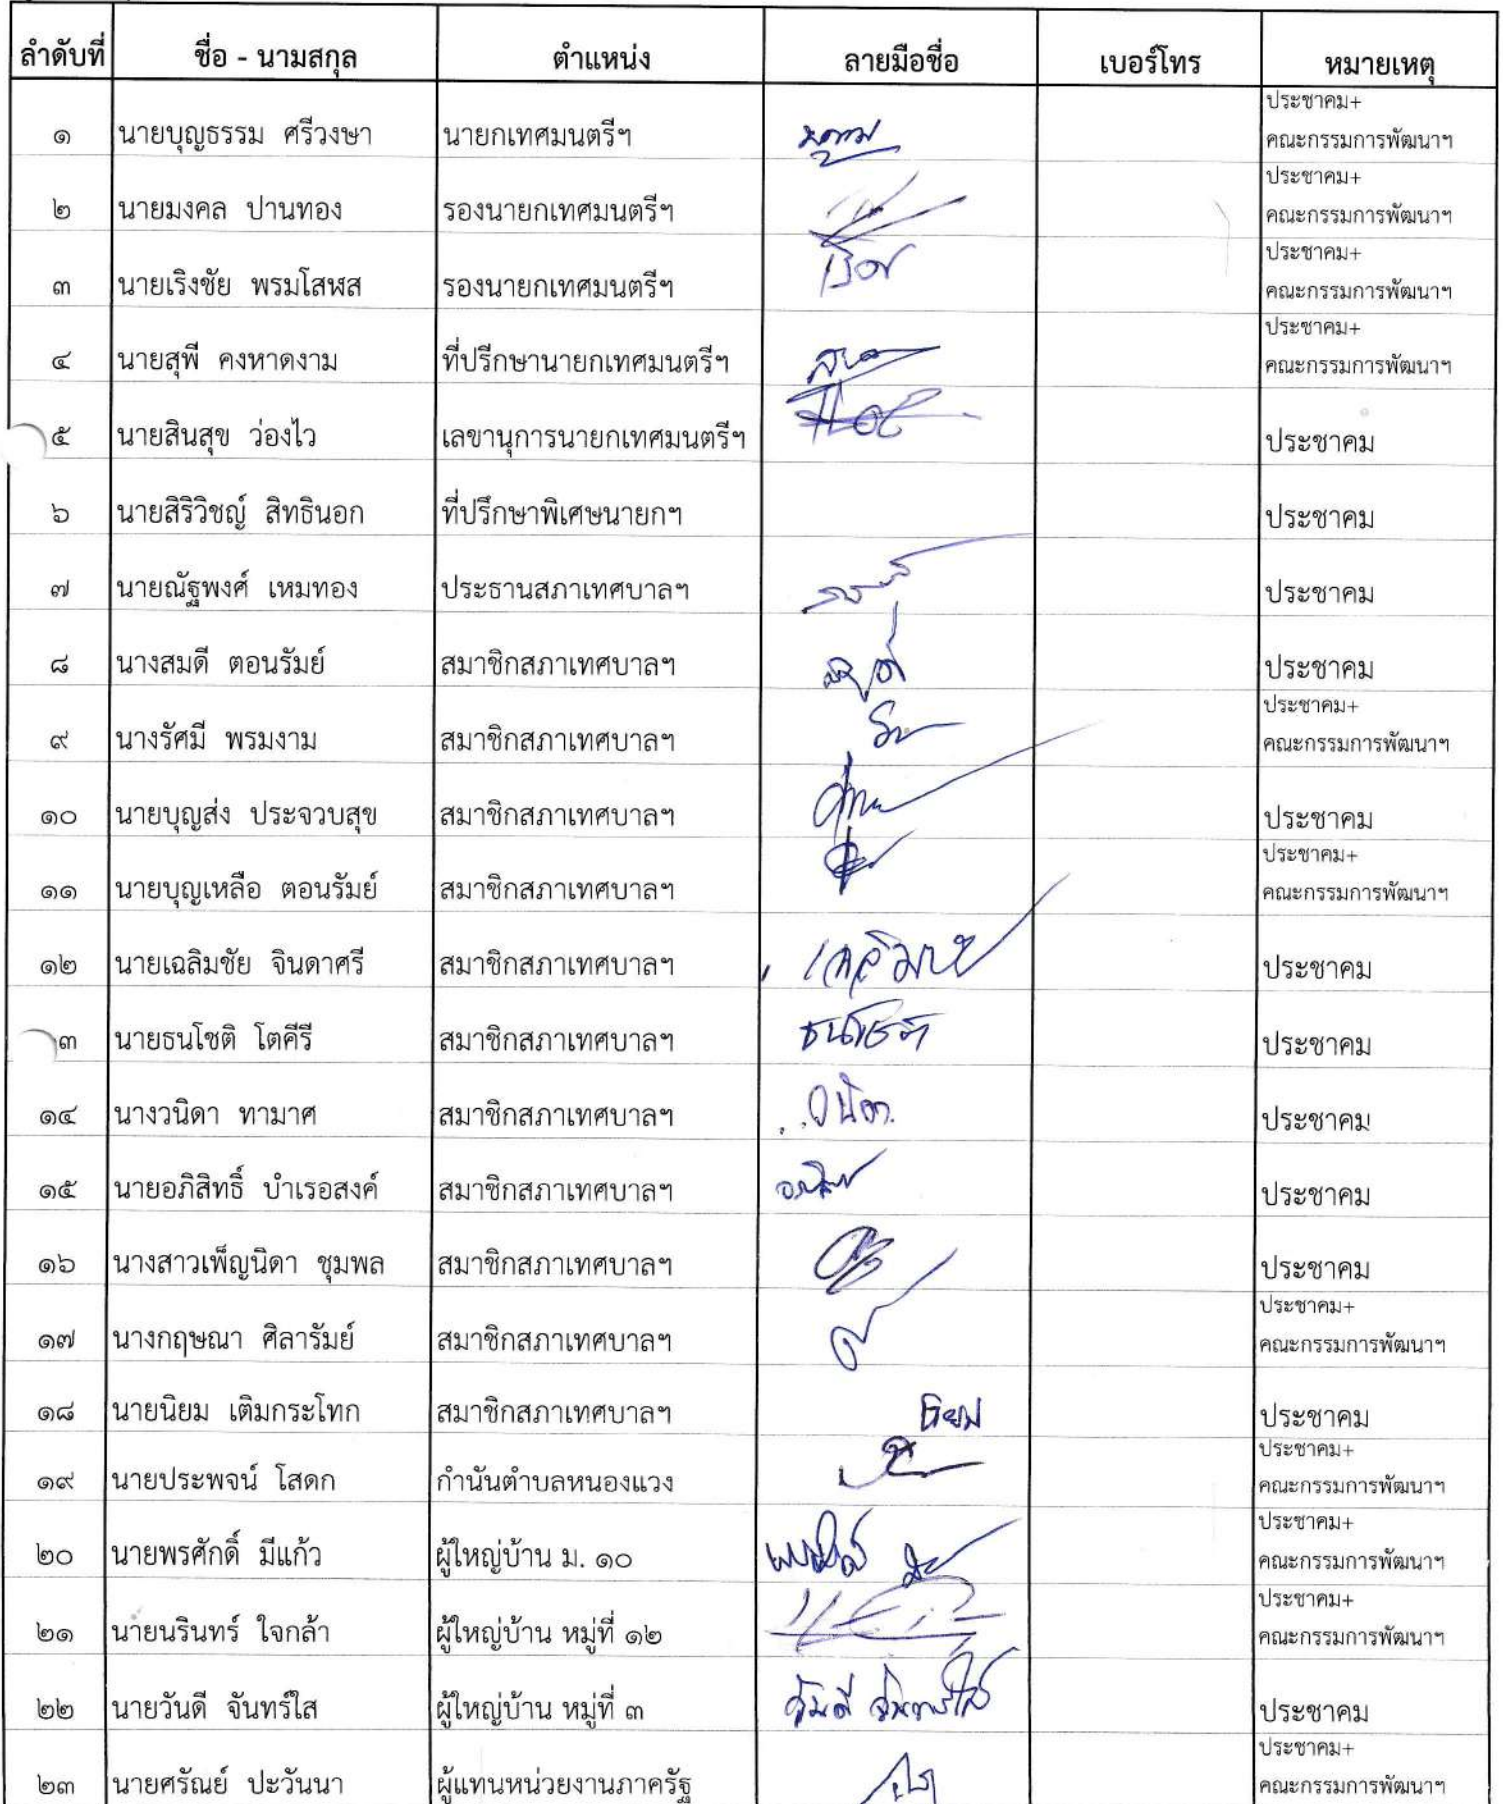 ลำดับที่ ชื่อ - นามสกุล ตำแหน่ง ลายมือชื่อ เบอร์โทร หมายเหตุ
๑ นายบุญธรรม ศรีวงษา นายกเทศมนตรีฯ ประชาคม+
คณะกรรมการพัฒนาฯ
๒ นายมงคล ปานทอง รองนายกเทศมนตรีฯ ประชาคม+
คณะกรรมการพัฒนาฯ
๓ นายเริงชัย พรมโสฬส รองนายกเทศมนตรีฯ ประชาคม+
คณะกรรมการพัฒนาฯ
๔ นายสุพี คงหาดงาม ที่ปรึกษานายกเทศมนตรีฯ ประชาคม+
คณะกรรมการพัฒนาฯ
๕ นายสินสุข ว่องไว เลขานุการนายกเทศมนตรีฯ ประชาคม
๖ นายสิริวิชญ์ สิทธินอก ที่ปรึกษาพิเศษนายกฯ ประชาคม
๗ นายณัฐพงศ์ เหมทอง ประธานสภาเทศบาลฯ ประชาคม
๘ นางสมดี ตอนรัมย์ สมาชิกสภาเทศบาลฯ ประชาคม
๙ นางรัศมี พรมงาม สมาชิกสภาเทศบาลฯ ประชาคม+
คณะกรรมการพัฒนาฯ
๑๐ นายบุญส่ง ประจวบสุข สมาชิกสภาเทศบาลฯ ประชาคม
๑๑ นายบุญเหลือ ตอนรัมย์ สมาชิกสภาเทศบาลฯ ประชาคม+
คณะกรรมการพัฒนาฯ
๑๒ นายเฉลิมชัย จินดาศรี สมาชิกสภาเทศบาลฯ เฉลิมชัย ประชาคม
๓ นายธนโชติ โตคีรี สมาชิกสภาเทศบาลฯ ธนโชติ ประชาคม
๑๔ นางวนิดา ทามาศ สมาชิกสภาเทศบาลฯ วนิดา ประชาคม
๑๕ นายอภิสิทธิ์ บำเรอสงค์ สมาชิกสภาเทศบาลฯ ประชาคม
๑๖ นางสาวเพ็ญนิดา ชุมพล สมาชิกสภาเทศบาลฯ ประชาคม
๑๗ นางกฤษณา ศิลารัมย์ สมาชิกสภาเทศบาลฯ ประชาคม+
คณะกรรมการพัฒนาฯ
๑๘ นายนิยม เติมกระโทก สมาชิกสภาเทศบาลฯ นิยม ประชาคม
๑๙ นายประพจน์ โสดก กำนันตำบลหนองแวง ประชาคม+
คณะกรรมการพัฒนาฯ
๒๐ นายพรศักดิ์ มีแก้ว ผู้ใหญ่บ้าน ม. ๑๐ ประชาคม+
คณะกรรมการพัฒนาฯ
๒๑ นายนรินทร์ ใจกล้า ผู้ใหญ่บ้าน หมู่ที่ ๑๒ ประชาคม+
คณะกรรมการพัฒนาฯ
๒๒ นายวันดี จันทร์ใส ผู้ใหญ่บ้าน หมู่ที่ ๓ วันดี จันทร์ใส ประชาคม
๒๓ นายศรัณย์ ปะวันนา ผู้แทนหน่วยงานภาครัฐ ประชาคม+
คณะกรรมการพัฒนาฯ